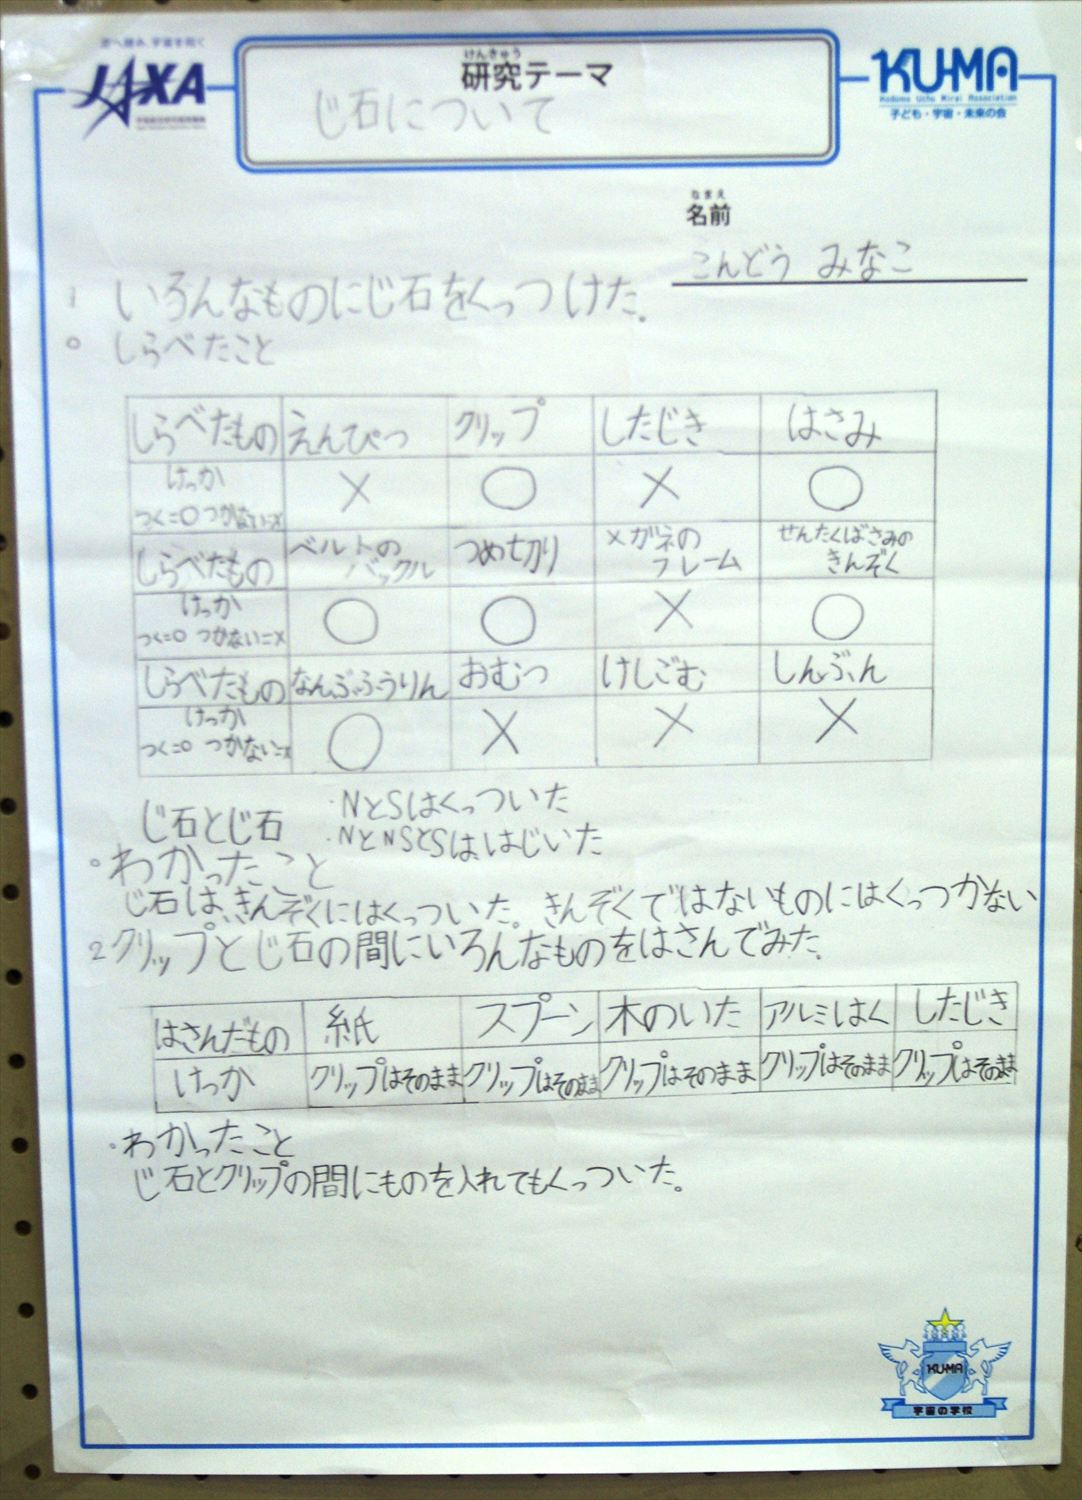 空へ挑み、宇宙を拓く
JAXA
けんきゅう
研究テーマ
じ石について
KU-MA
Kodomo Uchu Mirai Association
子ども・宇宙・未来の会
なまえ
名前
こんどう みなこ
1 いろんなものにじ石をくっつけた.
○ しらべたこと
しらべたもの えんぴつ クリップ したじき はさみ
けっか × ○ × ○
つく=○ つかない=×
しらべたもの ベルトのバックル つめ切り メガネのフレーム せんたくばさみのきんぞく
けっか ○ ○ × ○
つく=○ つかない=×
しらべたもの なんぶふうりん おむつ けしごむ しんぶん
けっか ○ × × ×
つく=○ つかない=×
じ石とじ石 ・NとSはくっついた
・NとNSとSは、はじいた
・わかったこと
じ石は、きんぞくにはくっついた。きんぞくではないものにはくっつかない
2 クリップとじ石の間にいろんなものをはさんでみた.
はさんだもの 紙 スプーン 木のいた アルミはく したじき
けっか クリップはそのまま クリップはそのまま クリップはそのまま クリップはそのまま クリップはそのまま
・わかったこと
じ石とクリップの間にものを入れてもくっついた。
KU-MA
宇宙の学校